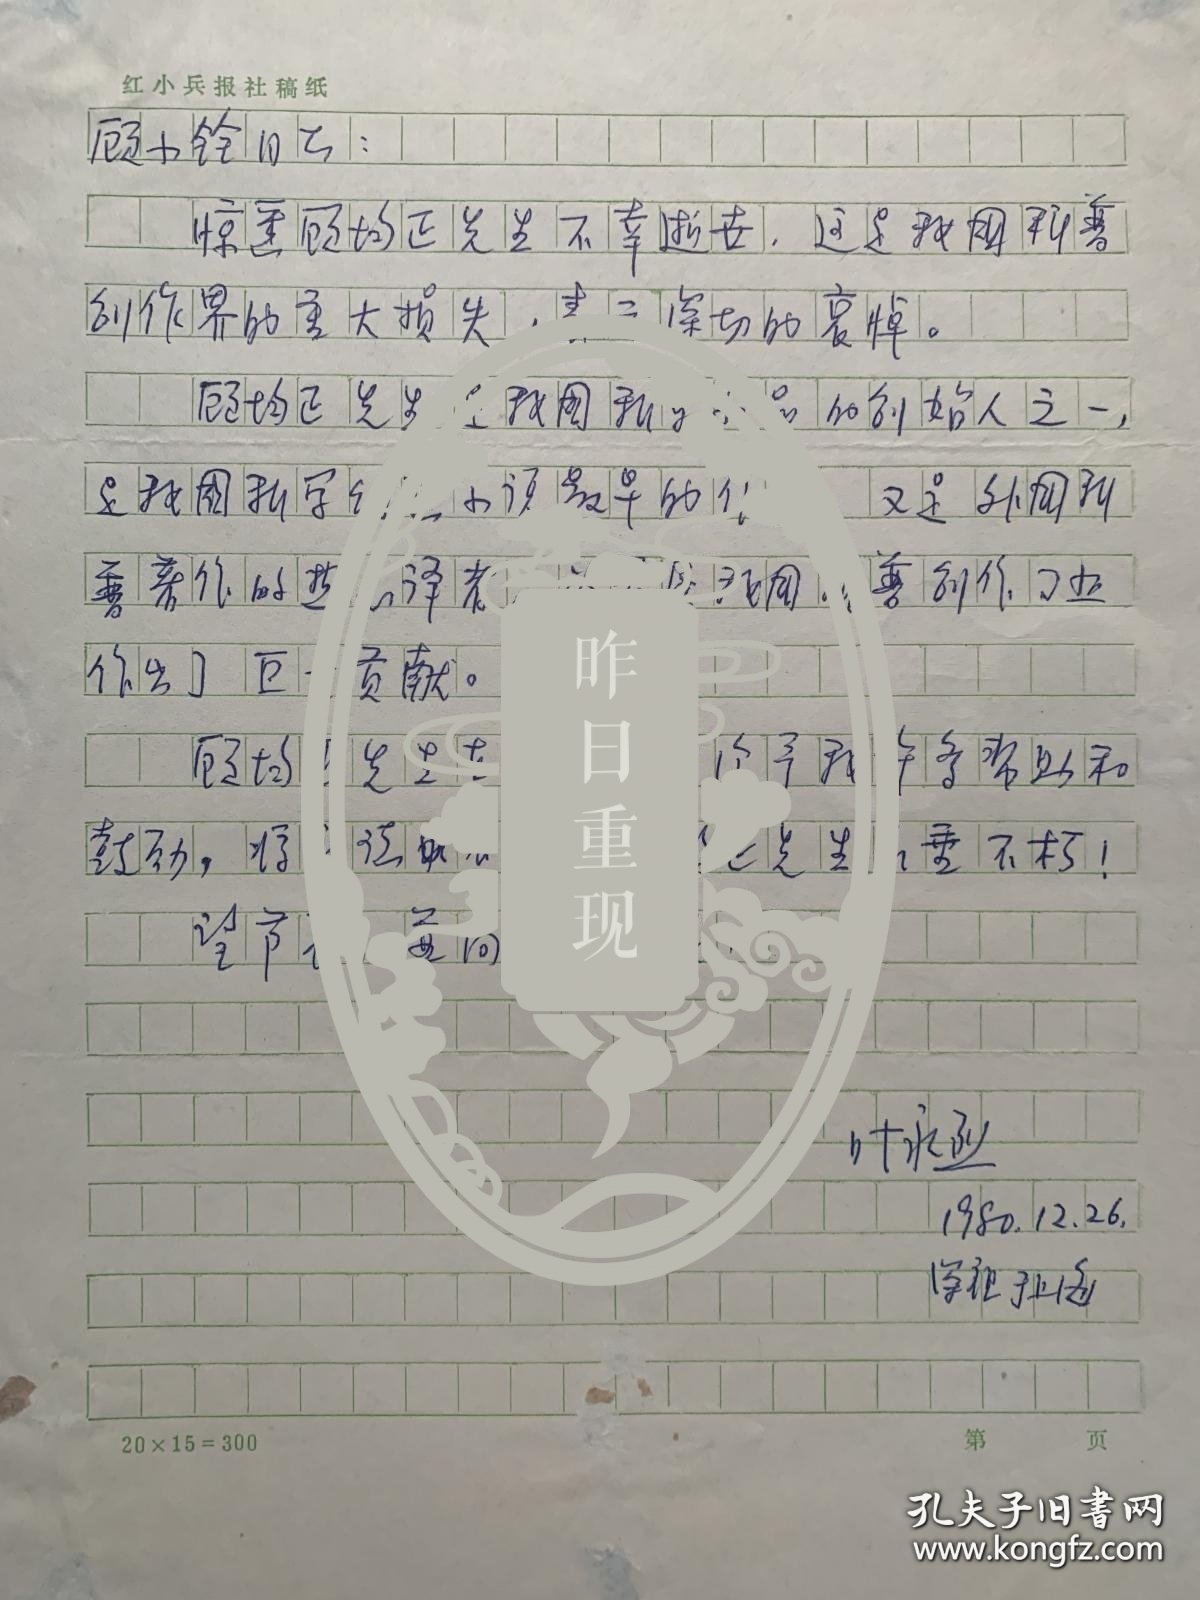 红小兵报社稿纸
顾小铨同志：
惊悉顾均正先生不幸逝世，这是我国科普
创作界的重大损失，表示深切的哀悼。
顾均正先生是我国科学小品的创始人之一，
是我国科学幻想小说最早的作 又是外国科
普著作的 译者 我国科普创作事业
作出了巨大贡献。
顾均正先生在 给予我许多帮助和
鼓励， 先生永垂不朽！
望节哀
叶永烈
1980.12.26.
深夜于上海
20×15=300
第 页
昨日重现
孔夫子旧书网
www.kongfz.com